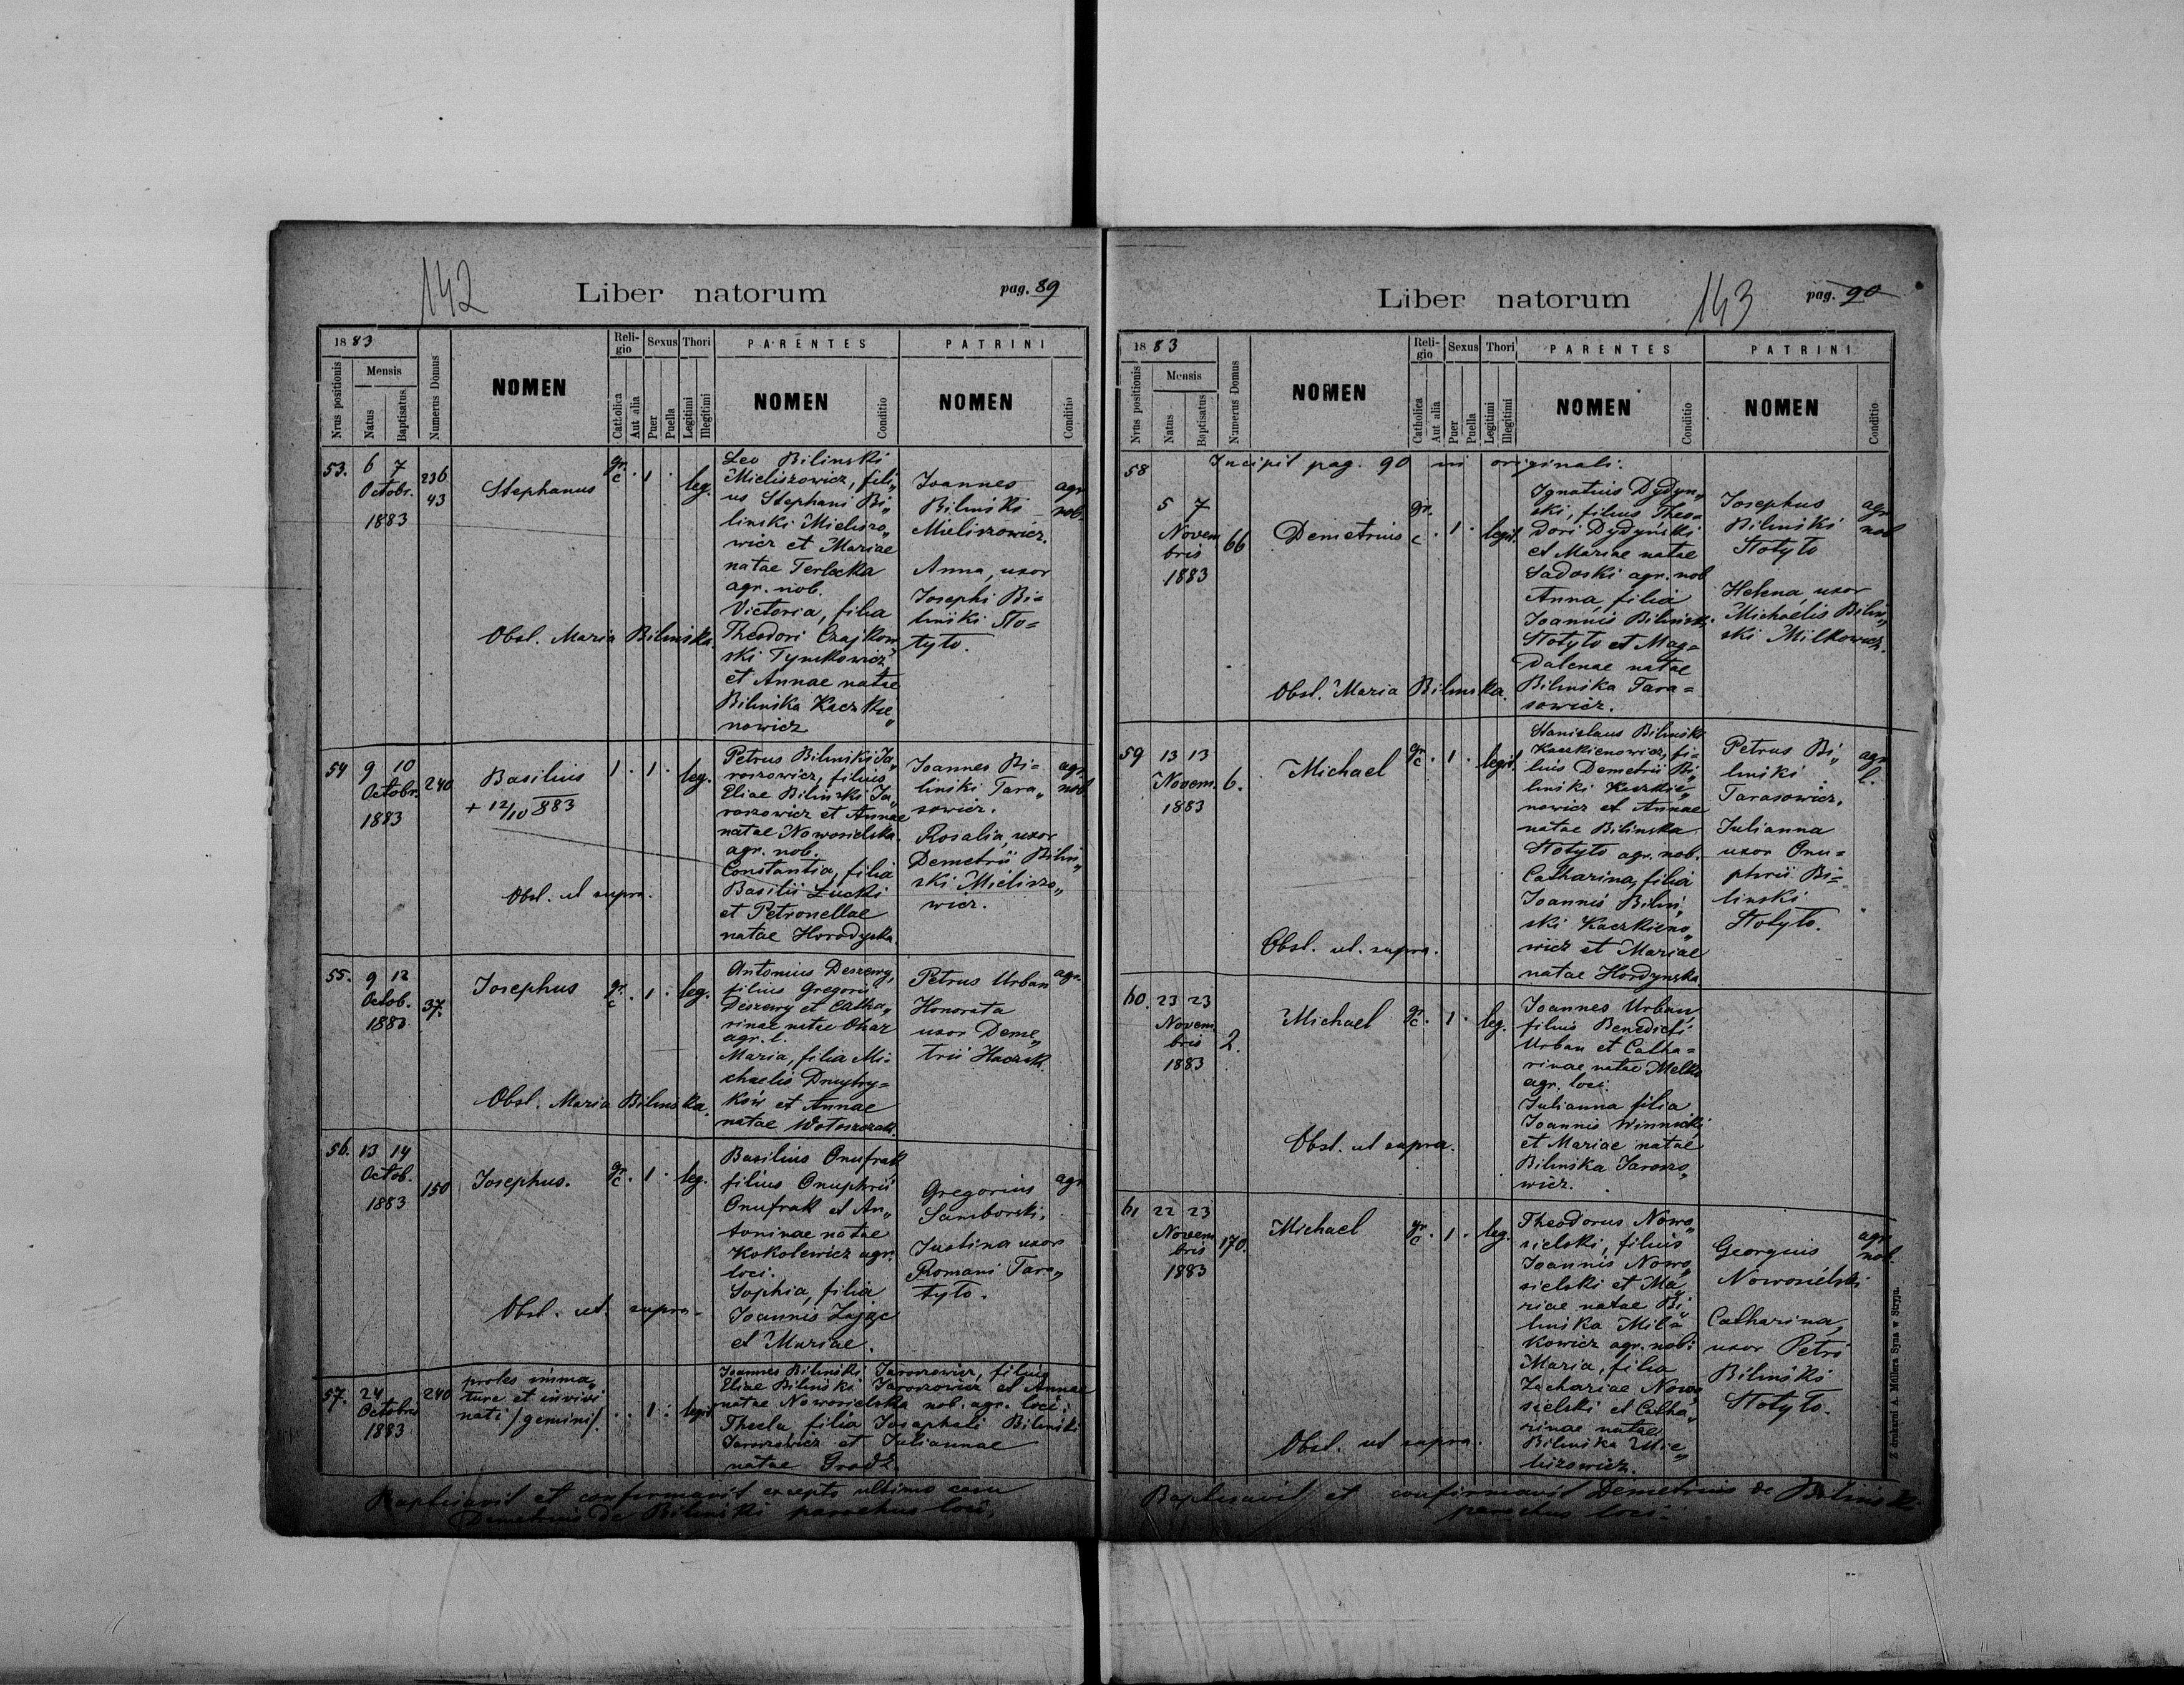 142
Liber natorum
pag. 89
1883
Nrus positionis
Mensis
Natus
Baptisatus
Numerus Domus
NOMEN
Religio
Catholica
Aut alia
Sexus
Puer
Puella
Thori
Legitimi
Illegitimi
PARENTES
NOMEN
Conditio
PATRINI
NOMEN
Conditio
53.
6 7
Octobr.
1883
236
43
Stephanus
gr.
c
. 1 .
leg.
Leo Bilinski
Mieliszowicz, fili„
us Stephani Bi„
linski Mieliszo„
wicz et Mariae
natae Terlecka
agr. nob.
Victoria, filia
Theodori Czajkow„
ski Tymkowicz
et Annae natae
Bilinska Kaczkie„
nowicz
Joannes
Bilinski
Mieliszowicz.
Anna, uxor
Josephi Bi=
linski Sto=
tyto.
agr.
nob.
Obst. Maria Bilinska.
54
9 10
Octobr.
1883
240
Basilius
+ 12/10 883
1 . 1 .
leg.
Petrus Bilinski Ja„
roszowicz, filius
Eliae Bilinski Ja„
roszowicz et Annae
natae Nowosielska.
agr. nob.
Constantia, filia
Basilii Łucki
et Petronellae
natae Horodyska.
Joannes Bi=
linski Tara„
sowicz.
Rosalia, uxor
Demetrii Bilin„
ski Mieliszo„
wicz.
agr.
nob
Obst. ut supra.
55.
9 12
Octob.
1883
37.
Josephus
gr
c
. 1 .
leg.
Antonius Deszewy,
filius Gregorii
Deszewy et Catha„
rinae natae
agr. l.
Maria, filia Mi=
chaelis Dmytry=
ków et Annae
natae Wołoszczak.
Petrus Urban
Honorata
uxor Deme„
trii
agr.
Obst. Maria Bilinska.
56.
13 14
Octob.
1883
150
Josephus.
gr
c
. 1 .
leg.
Basilius Onufrak
filius Onuphrii
Onufrak et An„
toninae natae
Kokolewicz agr.
loci.
Sophia, filia
Joannis Zając
et Mariae.
Gregorius
Samborski.
Justina uxor
Romani Tara„
tyto.
agr
Obst. ut supra
57.
24
Octobris
1883
240
proles imma„
ture et invivi
nati /gemini/.
. . 1 .
legit.
Joannes Bilinski Jaroszowicz, filius
Eliae Bilinski Jaroszowicz et Annae
natae Nowosielska nob. agr. loci.
Thecla filia Josaphati Bilinski
Jaroszowicz et Juliannae
natae Grodz.
Baptisavit et confirmavit excepto ultimo casu
Demetrius de Bilinski parochus loci.
Liber natorum
143
pag. 90
1883
Nrus positionis
Mensis
Natus
Baptisatus
Numerus Domus
NOMEN
Religio
Catholica
Aut alia
Sexus
Puer
Puella
Thori
Legitimi
Illegitimi
PARENTES
NOMEN
Conditio
PATRINI
NOMEN
Conditio
58
Incipit pag. 90 in originali.
5 7
Novem
bris
1883
66
Demetrius
gr.
c
. 1 .
legit.
Ignatius Dydyn„
ski, filius Theo=
dori Dydyński
et Mariae natae
Sadoski agr. nob
Anna, filia
Joannis Bilinski
Stotyto et Mag=
dalenae natae
Bilinska Tara=
sowicz.
Josephus
Bilinski
Stotyto
Helena, uxor
Michaelis Bilin„
ski Milkowicz.
agr
nob
Obst. Maria Bilinska.
59
13 13
Novem.
1883
6.
Michael
gr
c
. 1 .
legit.
Stanislaus Bilinski
Kaczkienowicz, fi=
lius Demetrii Bi„
linski Kaczkie„
nowicz et Annae
natae Bilinska
Stotyto agr. nob.
Catharina, filia
Joannis Bilin„
ski Kaczkieno„
wicz et Mariae
natae Hordynska
Petrus Bi„
linski
Tarasowicz.
Julianna
uxor Onu=
phrii Bi=
linski
Stotyto.
agr
l.
Obst. ut. supra.
60.
23 23
Novem
bris
1883
2.
Michael
gr
c
. 1 .
leg.
Joannes Urban,
filius Benedicti
Urban et Catha=
rinae natae Melko
agr. loci.
Julianna filia
Joannis Winnicki
et Mariae natae
Bilinska Jaroszo„
wicz.
Obst. ut supra.
61
22 23
Novem
bris
1883
170.
Michael
gr
c
. 1 .
leg.
Theodorus Nowo„
sielski, filius
Joannis Nowo„
sielski et Ma„
riae natae Bi„
linska Mil=
kowicz agr. nob.
Maria, filia
Zachariae Nowo„
sielski et Catha„
rinae natae
Bilinska Mie„
liszowicz.
Georgius
Nowosielski
Catharina,
uxor Petri
Bilinski
Stotyto.
agr
nob.
Obst. ut supra.
Baptisavit et confirmavit Demetrius de Bilinski
parochus loci.
Z drukarni A. Müllera Syna w Stryju.